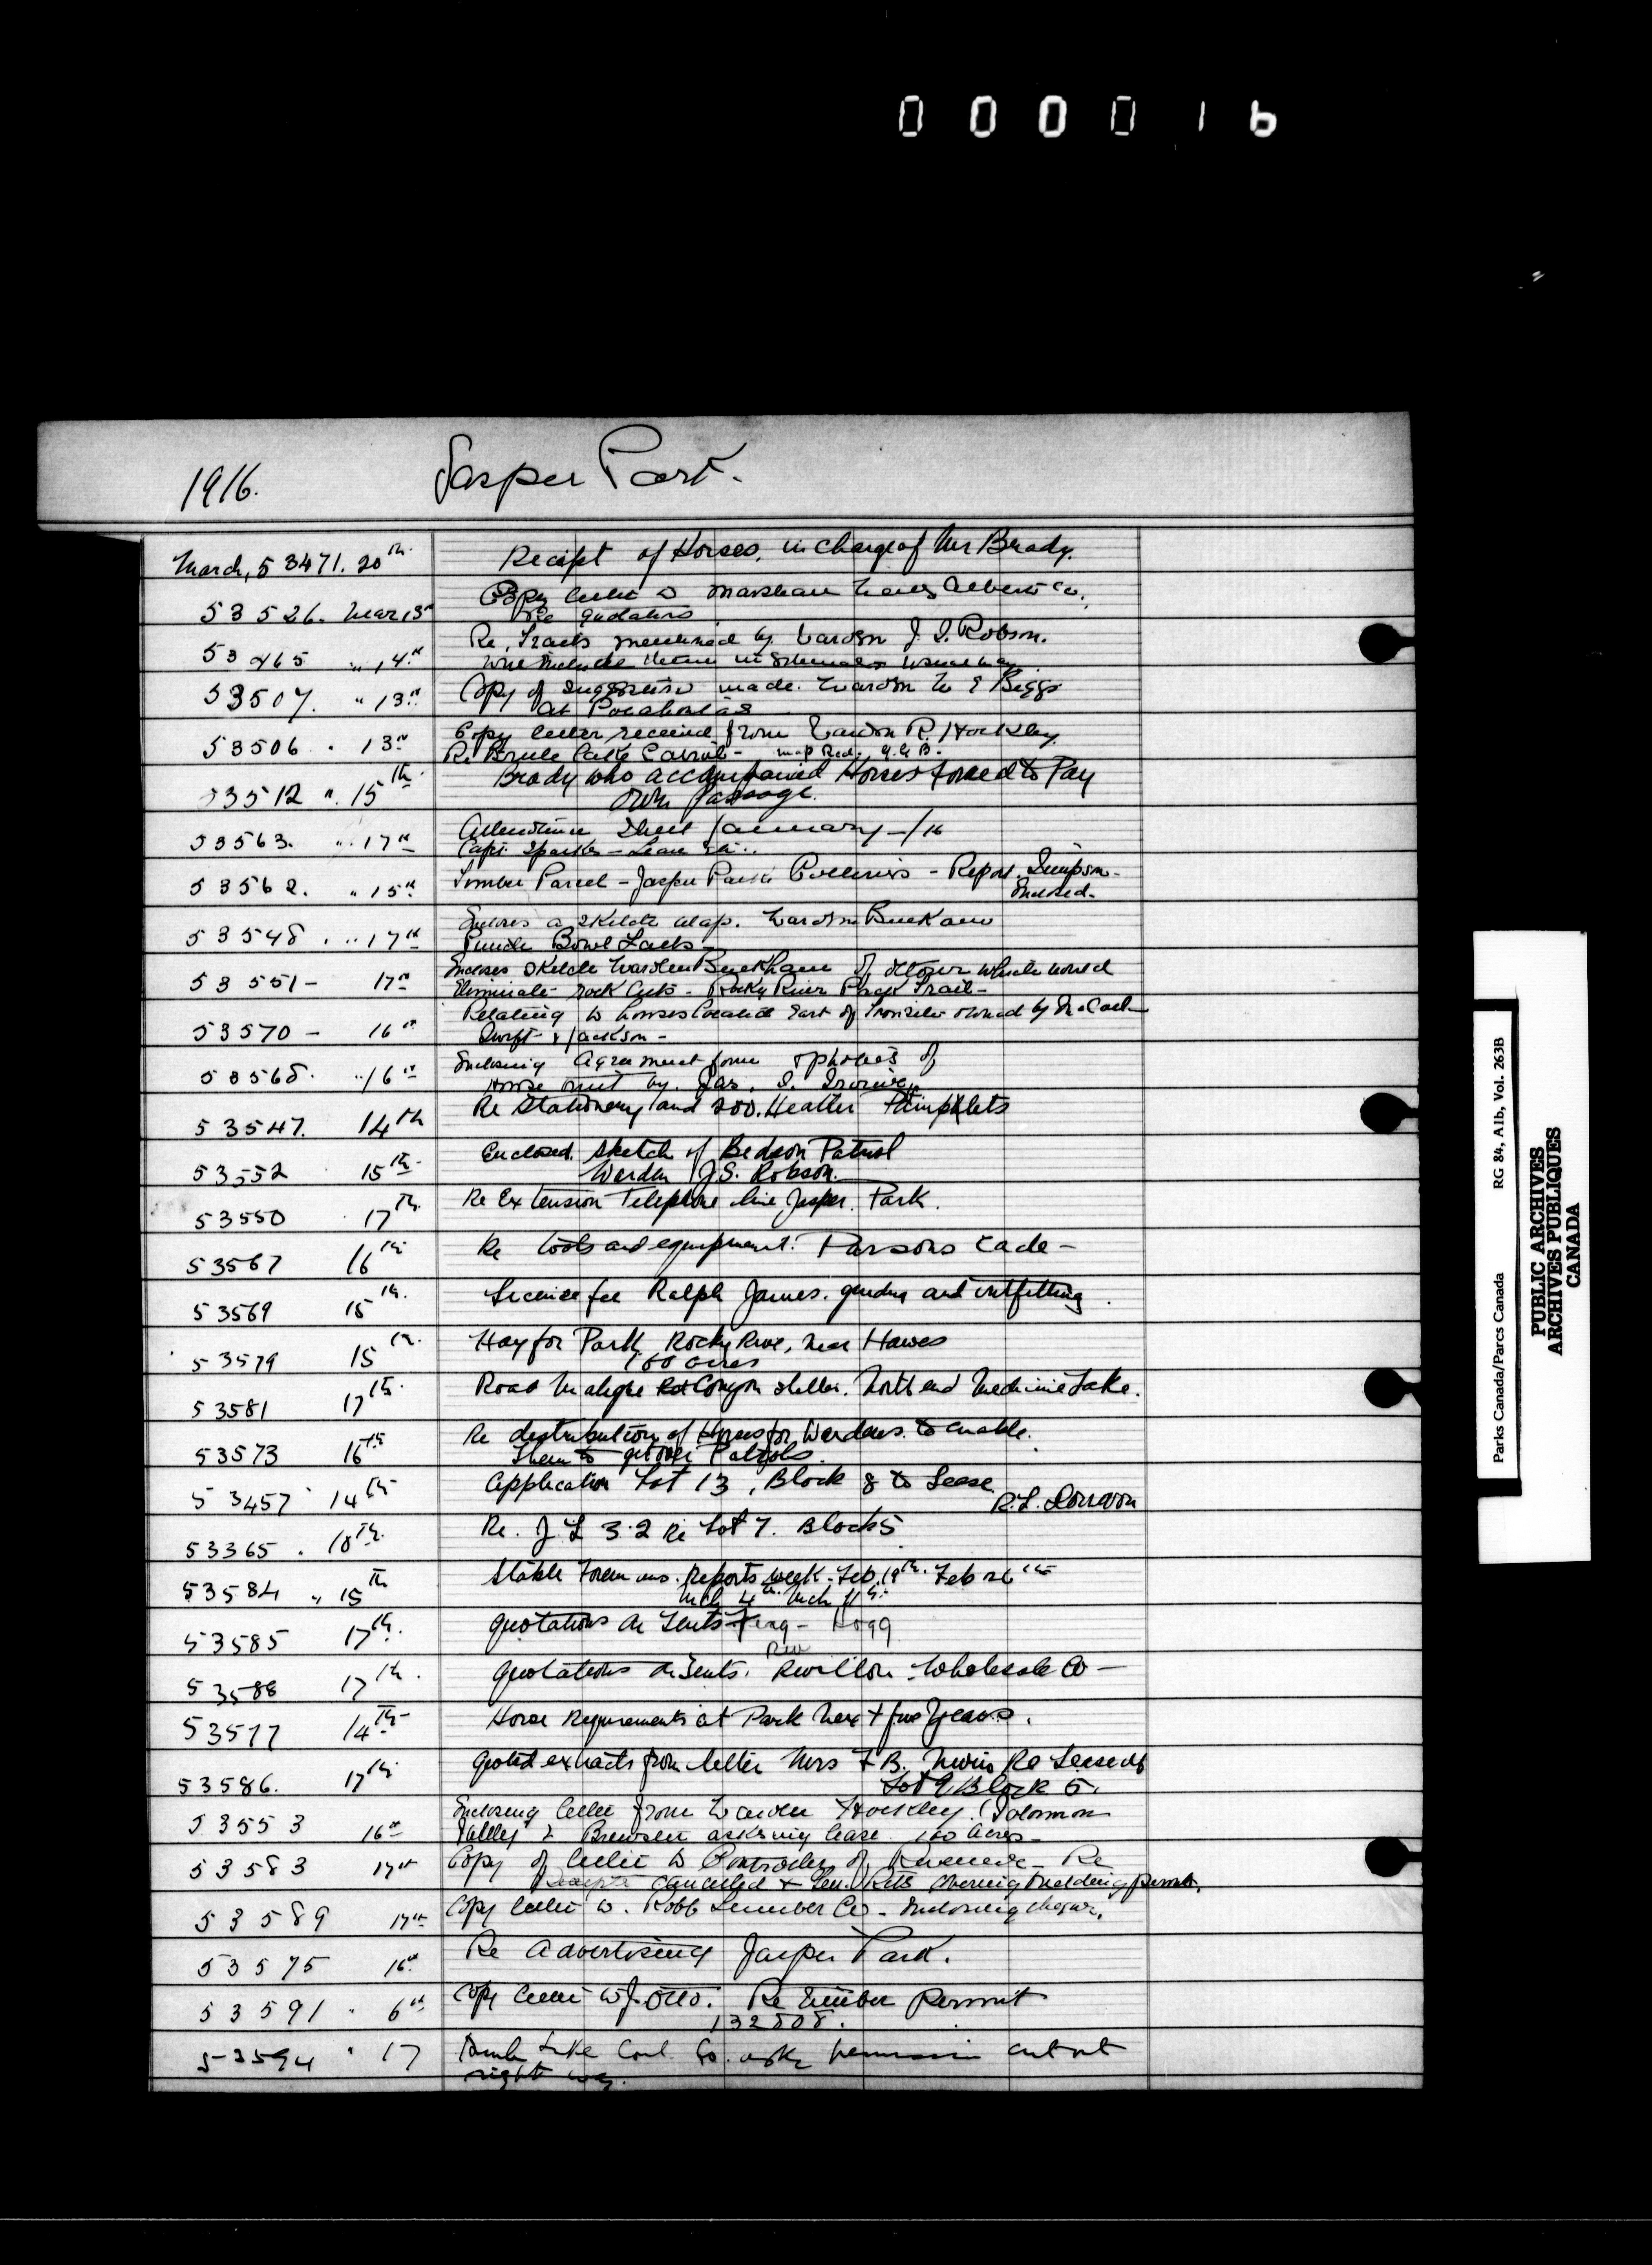 000016
1916. Jasper Park.
March, 53471. 20th Receipt of Horses, in charge of Mr Brady.
53526. Mar 15 Copy letter to Marshall Alberta Co.
Re quotations
53465 " 14th Re. Trails mentioned by Warden J. S. Robson.
Will include them in usual way.
53507. " 13th Copy of suggestion made. Warden W E Beggs
at Pocahontas
53506 " 13th Copy letter received from Warden R. Hockley
Re Brule Lake Cabin - map Red.
53512 " 15th Brady who accompanied Horses forced to Pay
own passage.
53563. " 17th Attendance Sheet January - /16
Capt. Sparks - Leave
53562. " 15th Timber Parcel - Jasper Park Collieries - Report. Simpson -
Enclosed -
53548 . " 17th Encloses a sketch Map. Warden Buckham
Punch Bowl Falls -
53551 - 17th Encloses sketch Warden Buckham of detour which would
eliminate rock cuts - Rocky River Pack Trail -
53570 - 16th Relating to houses located East of
Swift & Jackson -
53568. " 16th Enclosing Agreement form & photos of
House by. Jas. S.
53547. 14th Re Stationery and 200. Heather Pamphlets
53552 15th Enclosed. Sketch of Bedson Patrol
Warden J.S. Robson.
53550 17th Re Extension Telephone line Jasper. Park.
53567 16th Re tools and equipment. Parsons cade -
53569 15th License fee Ralph James. guiding and outfitting.
53579 15th Hay for Park Rocky River, near Hawes
160 acres
53581 17th Road Maligne Canyon shelter. North end Medicine Lake.
53573 16th Re distribution of Horses for Wardens. to enable.
them to get over Patrols.
53457 14th Application Lot 13, Block 8 to Lease.
R.L.
53365 . 18th Re. J L 32 Re Lot 7. Block 5
53584 " 15th Stable Foremans. Reports week - Feb. 19th. Feb 26th
Mch 4th. Mch 11th.
53585 17th. Quotations on Tents - Hogg
53588 17th. Quotations on Tents. Revillon Wholesale Co -
53577 14th Horse Requirements at Park Next five Years.
53586. 17th Quoted extracts from letter Mrs F B. Re Lease of
Lot 9 Block 5.
53553 16th Enclosing letter from Warden Hockley. (Solomon
Valley) & Brewster asking lease 160 acres -
53583 17th Copy of letter to Controller of Revenue - Re
Receipts cancelled & covering building permit.
53589 17th Copy letter to. Robb Lumber Co - Enclosing cheque.
53575 16th Re Advertising Jasper Park.
53591 . 6th Copy letter to J. Otto. Re timber Permit
132808.
53594 . 17 Lake Coal Co. asks permission cut out
right way.
Parks Canada/Parcs Canada RG 84, A1b, Vol. 263B
PUBLIC ARCHIVES
ARCHIVES PUBLIQUES
CANADA